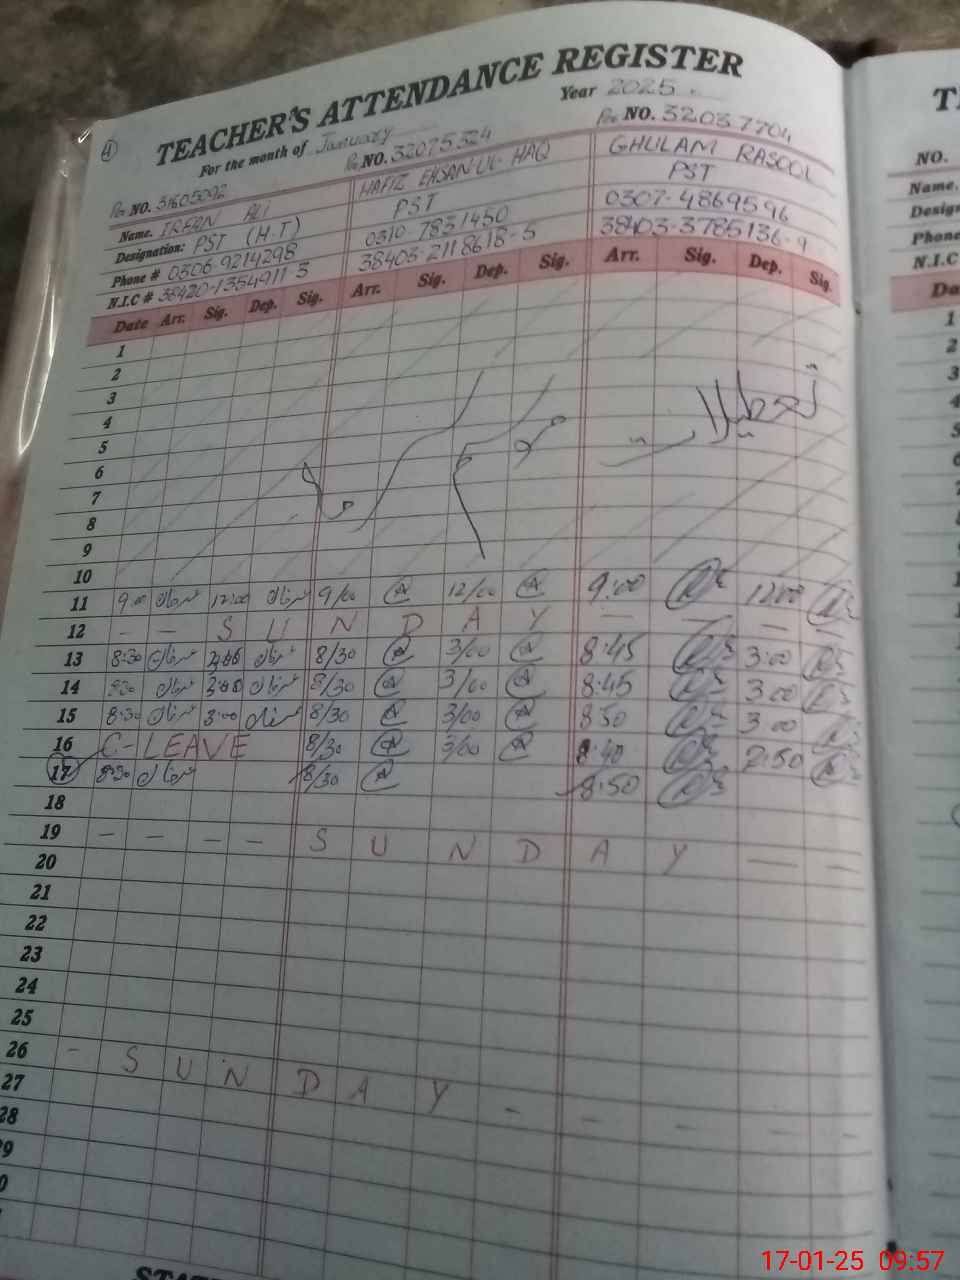 4
TEACHER'S ATTENDANCE REGISTER
For the month of January Year 2025
NO. 31605092 NO. 32075324 NO. 32037704
Name. IRFAN ALI HAFIZ EHSAN-UL-HAQ GHULAM RASOOL
Designation: PST (H.T) PST PST
Phone # 0306-9214298 0310-7831450 0307-4869596
N.I.C # 38420-1354911-3 38403-2118618-5 38403-3785136-9
Date Arr. Sig. Dep. Sig. Arr. Sig. Dep. Sig. Arr. Sig. Dep. Sig.
1
2
3
4
5
6
7
8
9
10
موسم سرما تعطیلات
11 9:00 عرفان 12:00 عرفان 9/00 12/00 9:00 12:00
12 — — S U N D A Y — — — —
13 8:30 عرفان عرفان 8/30 3/00 8:45 3:00
14 8:30 عرفان 3:00 عرفان 8/30 3/00 8:45 3:00
15 8:30 عرفان 3:00 عرفان 8/30 3/00 8:50 3:00
16 C-LEAVE 8/30 3/00 8:40 2:50
17 8:30 عرفان 8/30 8:50
18
19 — — — — S U N D A Y — —
20
21
22
23
24
25
26 - S U N D A Y - - - - -
27
28
29
0
TE
NO.
Name.
Phone
N.I.C
Da
1
2
3
17-01-25 09:57